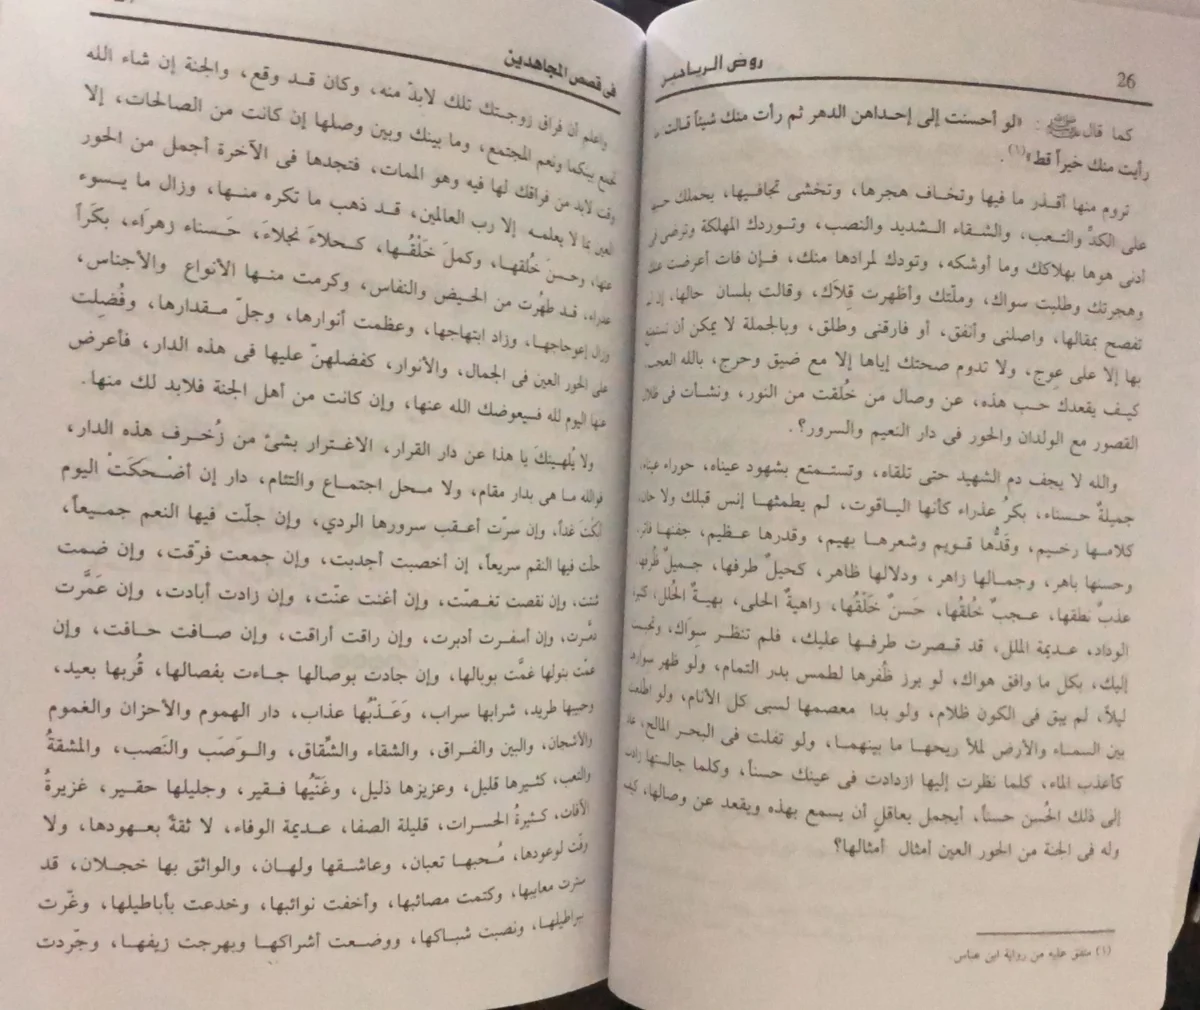 26
روض الرياحين
كما قال ﷺ: «لو أحسنت إلى إحداهن الدهر ثم رأت منك شيئاً قالت ما
رأيت منك خيراً قط»(١).
تروم منها أقذر ما فيها وتخاف هجرها، وتخشى تجافيها، يحملك حبها
على الكدِّ والتعب، والشقاء الشديد والنصب، وتوردك المهلكة وترضى فى
أدنى هوها بهلاكك وما أوشكه، وتودك لمرادها منك، فإن فات أعرضت عنك
وهجرتك وطلبت سواك، وملّتك وأظهرت قِلاَك، وقالت بلسان حالها، إن لم
تفصح بمقالها، واصلنى وأنفق، أو فارقنى وطلق، وبالجملة لا يمكن أن تستمتع
بها إلا على عوج، ولا تدوم صحتك إياها إلا مع ضيق وحرج، بالله العجب
كيف يقعدك حب هذه، عن وصال من خُلقت من النور، ونشأت فى ظلال
القصور مع الولدان والحور فى دار النعيم والسرور؟.
والله لا يجف دم الشهيد حتى تلقاه، وتستمتع بشهود عيناه، حوراء عيناء،
جميلةٌ حسناء، بكرُ عذراء كأنها الياقوت، لم يطمثها إنس قبلك ولا جان،
كلامها رخيم، وقَدُّها قويم وشعرها بهيم، وقدرها عظيم، جفنها فاتر،
وحسنها باهر، وجمالها زاهر، ودلالها ظاهر، كحيلٌ طرفها، جميلٌ ظُرفها،
عذبٌ نطقها، عجبٌ خُلقُها، حَسنٌ خَلْقُها، زاهيةُ الحلى، بهيةُ الحُلل، كثيرة
الوداد، عديمة الملل، قد قصرت طرفها عليك، فلم تنظر سِوَاك، وتحببت
إليك، بكل ما وافق هواك، لو برز ظُفرها لطمس بدر التمام، ولو ظهر سوارها
ليلاً، لم يبق فى الكون ظلام، ولو بدا معصمها لسبى كل الأنام، ولو اطلعت
بين السماء والأرض لملأ ريحها ما بينهما، ولو تفلت فى البحر المالح، عاد
كأعذب الماء، كلما نظرت إليها ازدادت فى عينك حسناً، وكلما جالستها زادت
إلى ذلك الحُسن حسناً، أيجمل بعاقلٍ أن يسمع بهذه ويقعد عن وصالها، كيف
وله فى الجنة من الحور العين أمثال أمثالها؟
(١) متفق عليه من رواية ابن عباس.
فى قصص المجاهدين
واعلم أن فراق زوجتك تلك لابدّ منه، وكان قد وقع، والجنة إن شاء الله
تجمع بينكما ونعم المجتمع، وما بينك وبين وصلها إن كانت من الصالحات، إلا
وقت لابد من فراقك لها فيه وهو الممات، فتجدها فى الآخرة أجمل من الحور
العين بما لا يعلمه إلا رب العالمين، قد ذهب ما تكره منها، وزال ما يسوء
عنها، وحسنَ خُلقها، وكملَ خَلْقُها، كحلاءَ نجلاءَ، حَسناء زهرَاء، بكرَاً
عذراء، قد طهُرت من الحيض والنفاس، وكرمت منها الأنواع والأجناس،
وزال إعوجاجها، وزاد ابتهاجها، وعظمت أنوارها، وجلّ مقدارها، وفُضِلت
على الحور العين فى الجمال، والأنوار، كفضلهنّ عليها فى هذه الدار، فأعرض
عنها اليوم لله فسيعوضك الله عنها، وإن كانت من أهل الجنة فلابد لك منها.
ولا يُلهينكَ يا هذا عن دار القرار، الاغترار بشئ من زُخرف هذه الدار،
فوالله ما هى بدار مقام، ولا محل اجتماع والتئام، دار إن أضْحكَتْ اليوم
أبكْت غداً، وإن سرّت أعقب سرورها الردي، وإن جلّت فيها النعم جميعاً،
حلّت فيها النقم سريعاً، إن أخصبت أجدبت، وإن جمعت فرّقت، وإن ضمت
شتت، وإن نقصت تغصّت، وإن أغنت عنّت، وإن زادت أبادت، وإن عَمَّرت
دمَّرت، وإن أسفرت أدبرت، وإن راقت أراقت، وإن صافت حافت، وإن
عمّت بنولها غمَّت بوبالها، وإن جادت بوصالها جاءت بفصالها، قُربها بعيد،
وحبيبها طريد، شرابها سراب، وَعَذْبُها عذاب، دار الهموم والأحزان والغموم
والأشجان، والبين والفراق، والشقاء والشِّقاق، والوَصَب والنَصب، والمشقةُ
والتعب، كثيرها قليل، وعزيزها ذليل، وغَنّيُها فقير، وجليلها حقير، غزيرةُ
الآفات، كثيرةُ الحسرات، قليلة الصفا، عديمة الوفاء، لا ثقةٌ بعهودها، ولا
وفّت لوعودها، مُحبها تعبان، وعاشقها ولهان، والواثق بها خجلان، قد
سترت معايبها، وكتمت مصائبها، وأخفت نوائبها، وخدعت بأباطيلها، وغرّت
ببراطيلها، ونصبت شباكها، ووضعت أشراكها وبهرجت زيفها، وجّردت